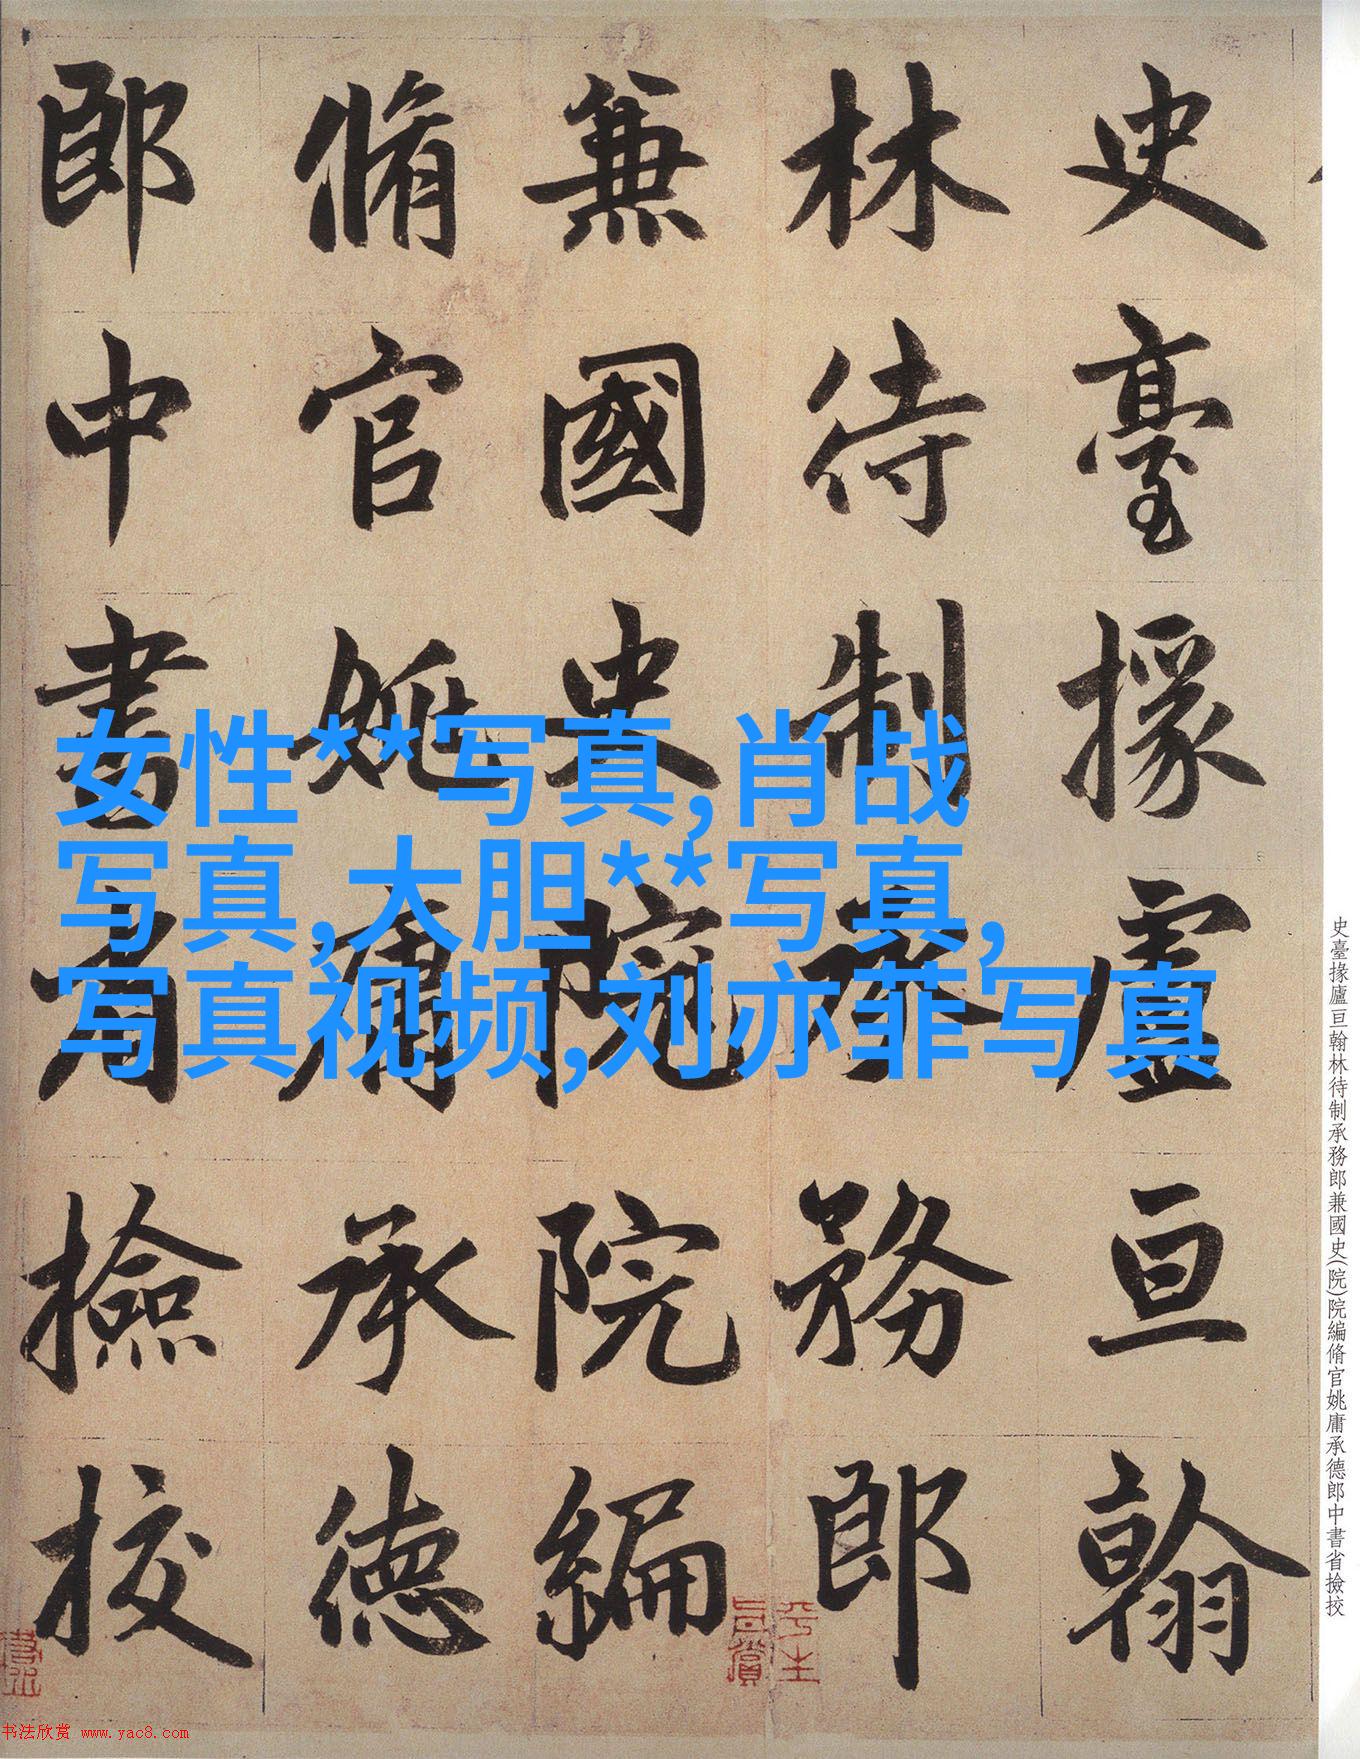 史臺掾廬亘翰
林待制承務郎
兼國史院院編
脩官姚庸承德
郎中書省撿挍
女性**写真,肖战
写真,大胆**写真,
写真视频,刘亦菲写真
史臺掾廬亘翰林待制承務郎兼國史(院)院編脩官姚庸承德郎中書省撿挍
书法欣赏 www.yac8.com